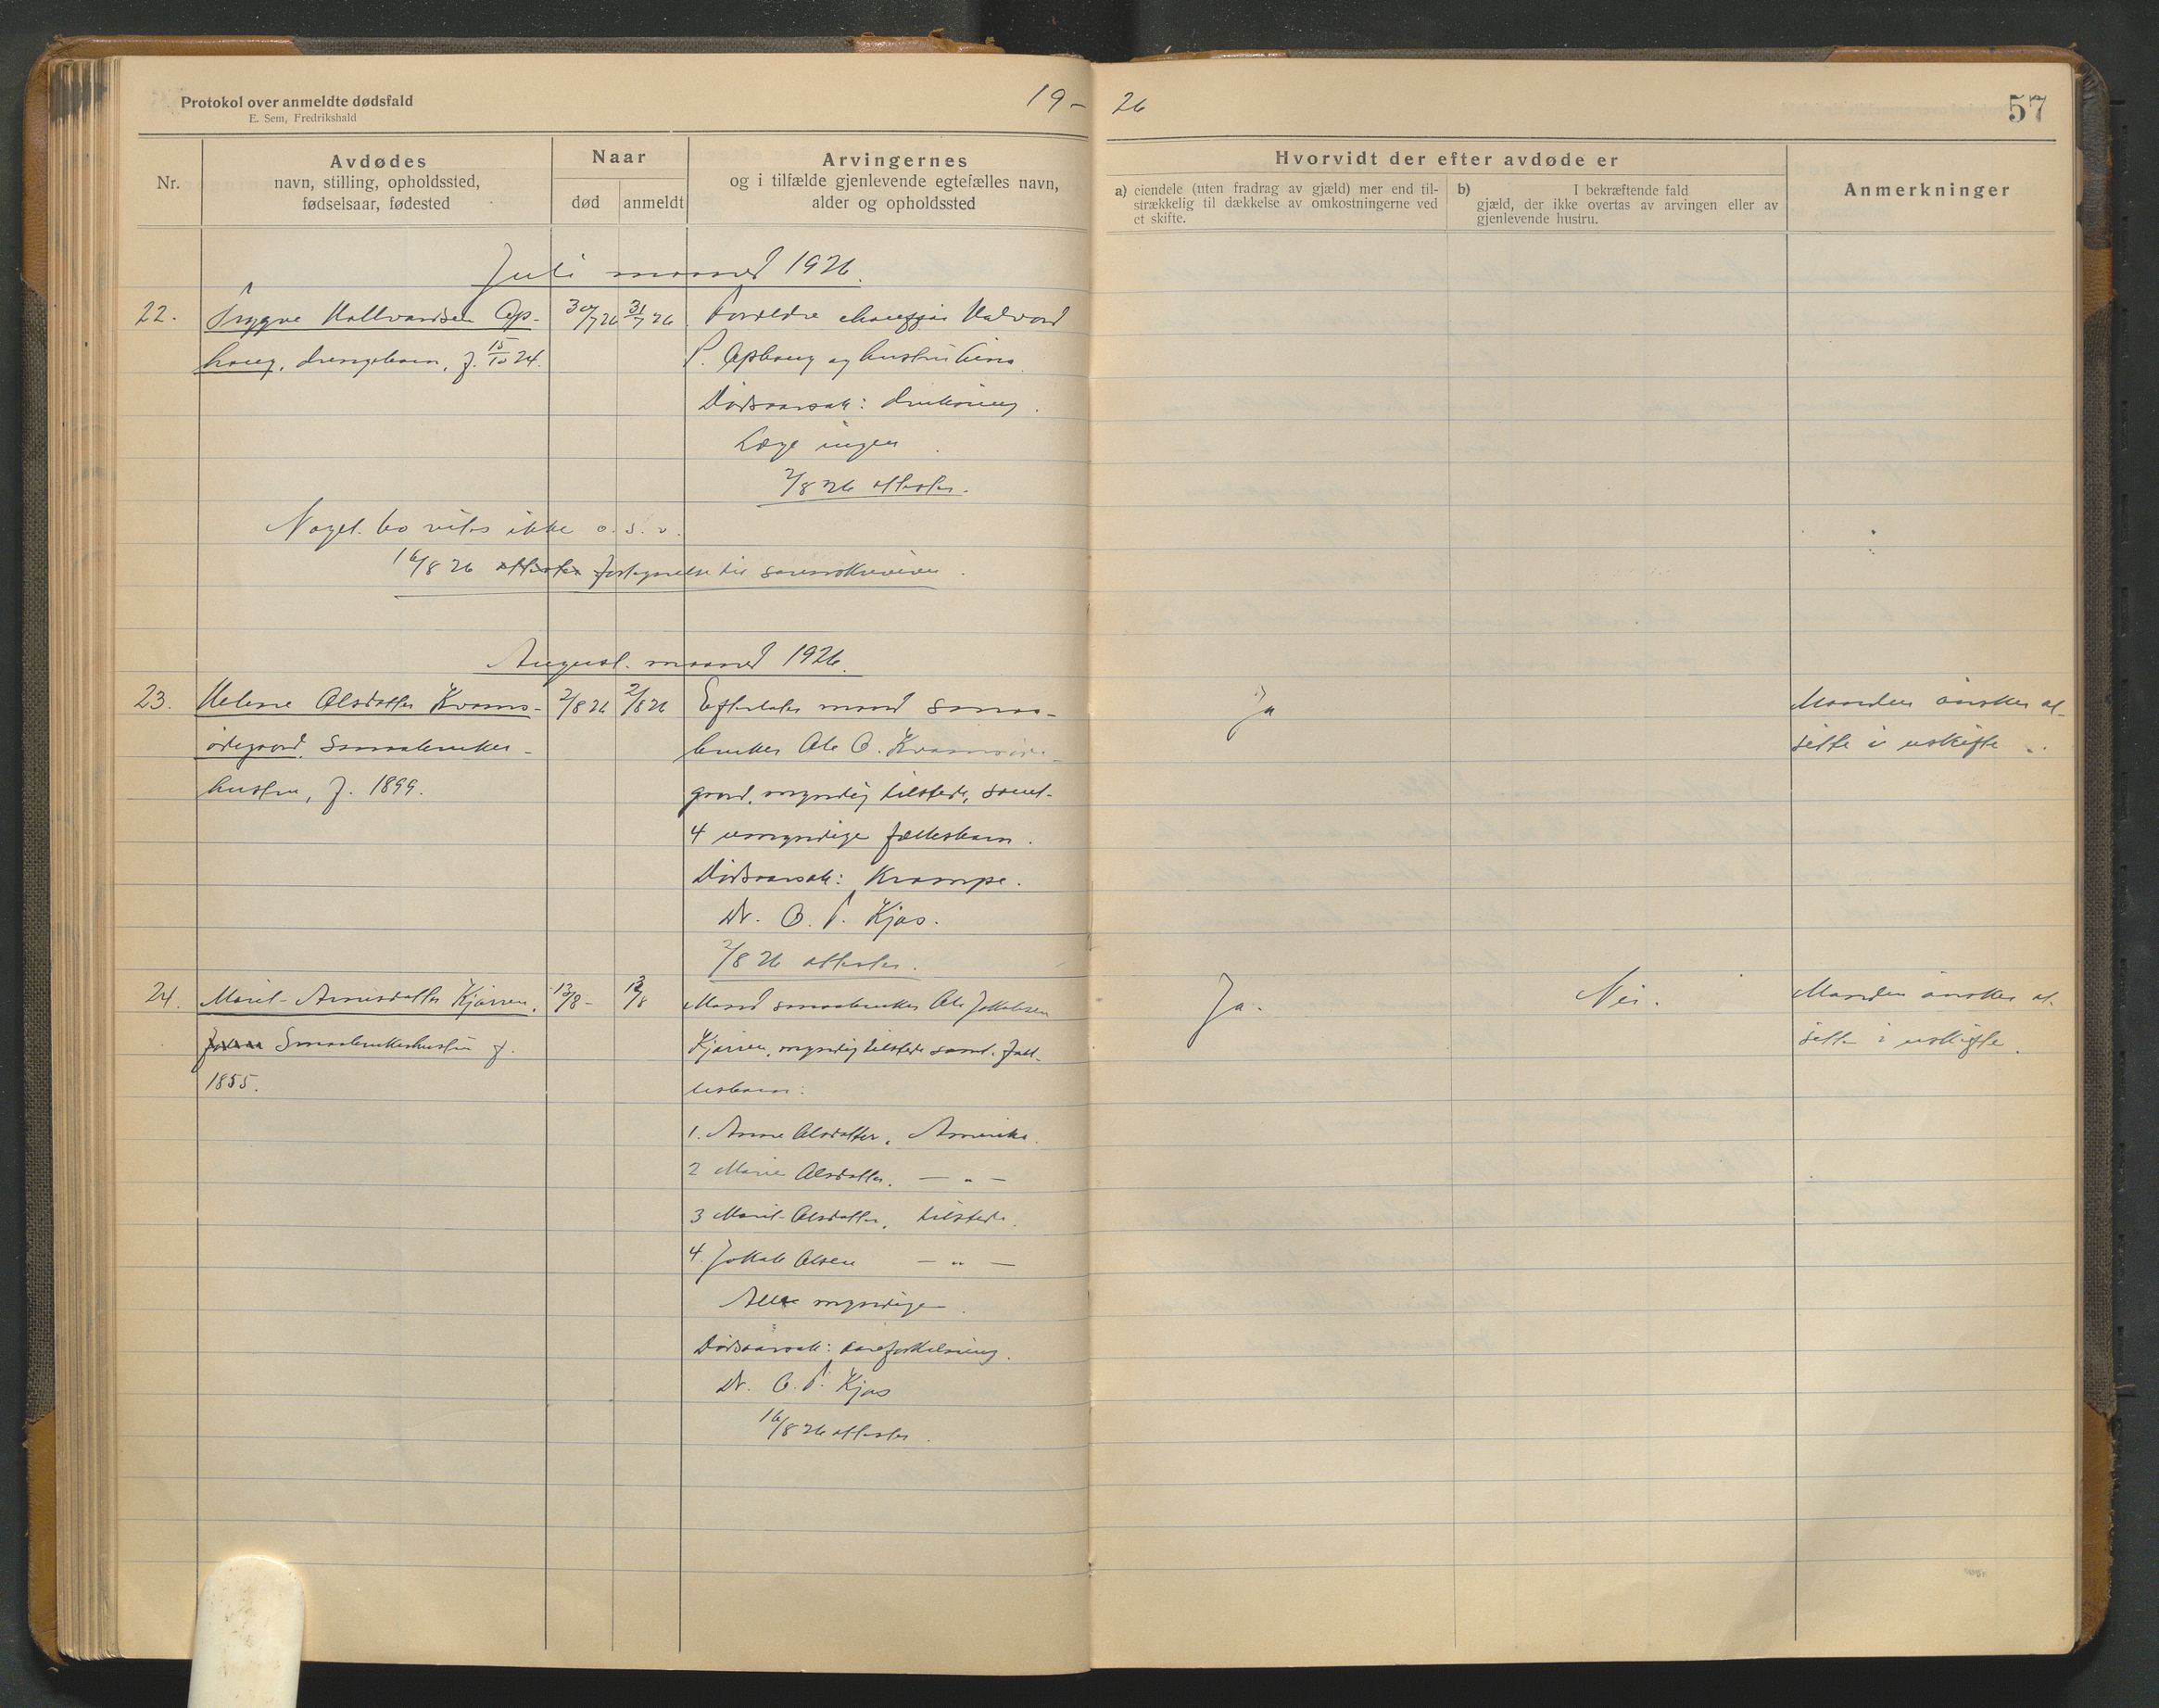 Protokol over anmeldte dødsfald
E. Sem, Fredrikshald
19-26
57
Nr.
Avdødes
navn, stilling, opholdssted,
fødselsaar, fødested
Naar
død
anmeldt
Arvingernes
og i tilfælde gjenlevende egtefælles navn,
alder og opholdssted
Hvorvidt der efter avdøde er
a) eiendele (uten fradrag av gjæld) mer end til-
strækkelig til dækkelse av omkostningerne ved
et skifte.
b) I bekræftende fald
gjæld, der ikke overtas av arvingen eller av
gjenlevende hustru.
Anmerkninger
Juli maaned 1926.
22. Trygve Hallvardsen Op- 30/7 26 31/7 26 Forældre Halvord
haug, drengebarn, f. 15/10 24. P. Ophaug og hustru
Dødsaarsak: drukning.
Læge ingen
2/8 26 attester.
Noget bo vites ikke o. s. v.
16/8 26 attester fortegnelse til sorenskriveren.
August maaned 1926.
23. Helene Olsdatter Kvams- 2/8 26 2/8 26 Efterlater mand smaa-
ødegaard. Smaabruker-
bruker Ole O. Kvamsøde-
hustru, f. 1899.
gaard, myndig tilstede, samt
4 umyndige fællesbarn.
Dødsaarsak: Krampe.
Dr. O. P. Kjøs.
2/8 26 attester.
Ja
Manden ønsker at
sitte i uskifte.
24. Marit Arnesdatter Kjørren, 13/8 - 13/8 Mand smaabruker Ole Jakobsen
Smaabrukerhustru f.
Kjørren, myndig tilstede samt fæl-
1855.
lesbarn:
1. Anne Olsdatter, Amerika.
2 Marie Olsdatter. — " —
3 Marit Olsdatter, tilstede.
4. Jakob Olsen — " —
Alle myndige.
Dødsaarsak: aareforkalkning.
Dr. O. P. Kjøs
16/8 26 attester.
Ja.
Nei.
Manden ønsker at
sitte i uskifte.